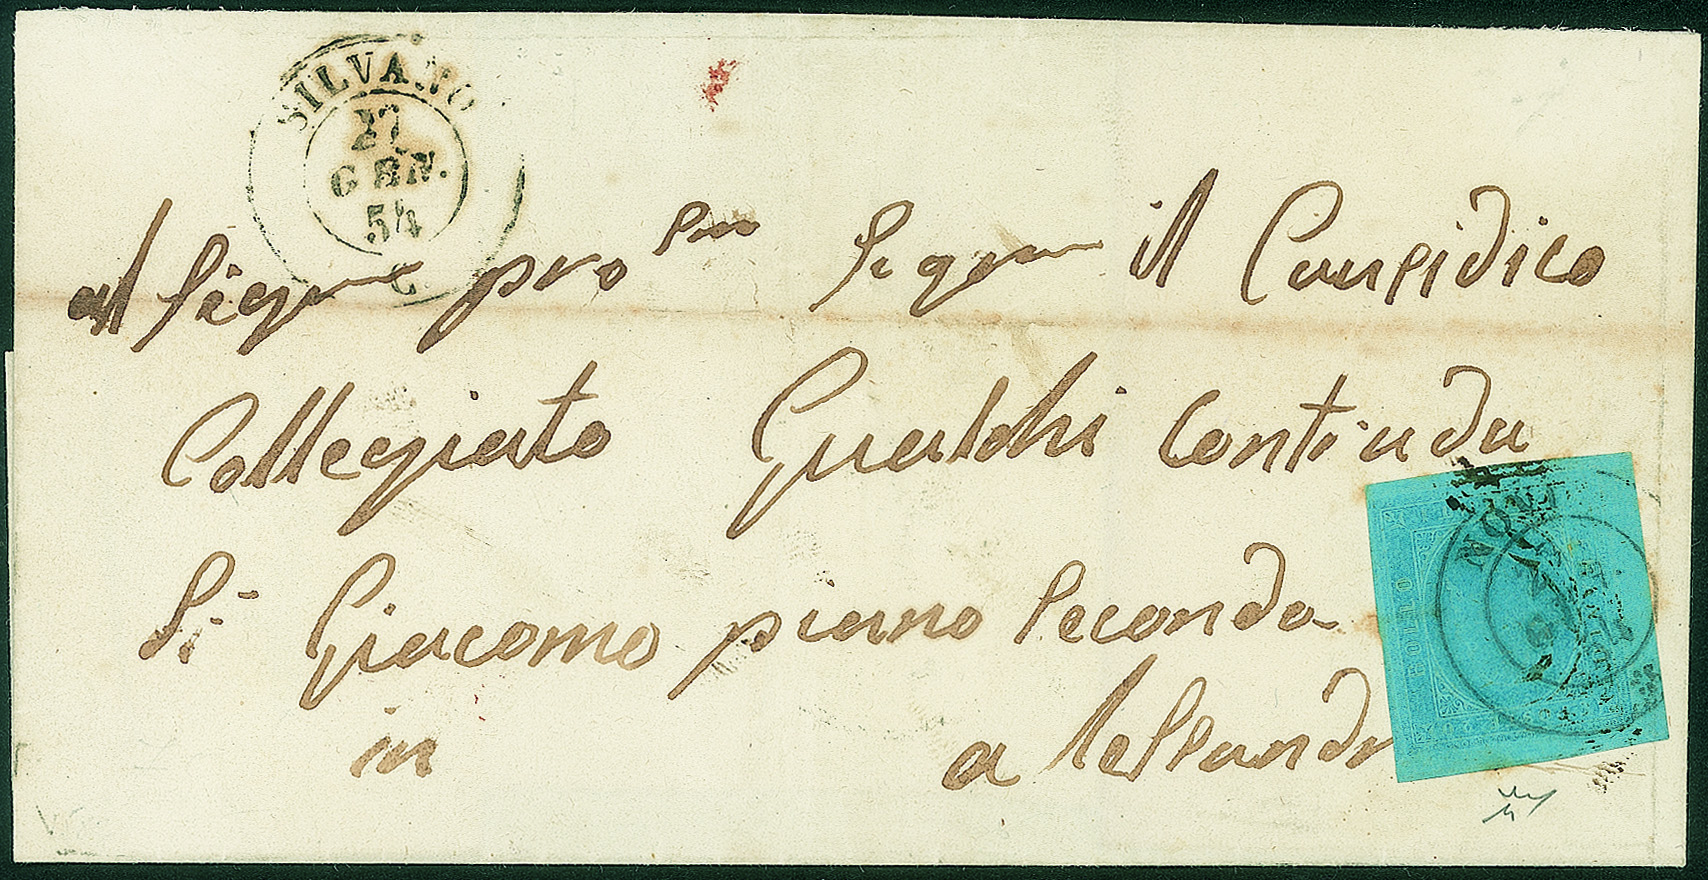 SILVANO
27
GEN.
54
al Sigre pro Sigr il Causidico
Collegiato Gualchi Contrada
Si Giacomo piano Secondo
in alessandr
BOLLO
NOV